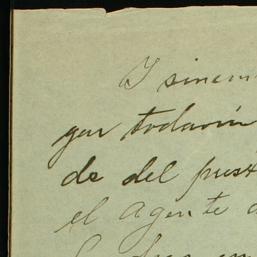 Y sinem
gar todavía
de del pres
el agente